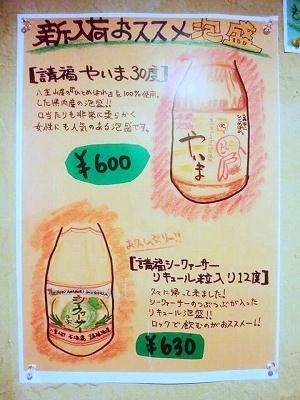 新入荷おススメ泡盛
[請福やいま30度]
八重山産の『ひとめぼれ』を100%使用。
した県内産の泡盛!!
口当たりも非常に柔らかく
女性にも人気のある泡盛です。
¥600
やいま
お久しぶり〜!!
[請福シークァーサー
リキュール粒入り12度]
久々に帰って来ました!
シークァーサーのつぶつぶが入った
リキュール泡盛!!
ロックで飲むのがおススメー!!
¥630